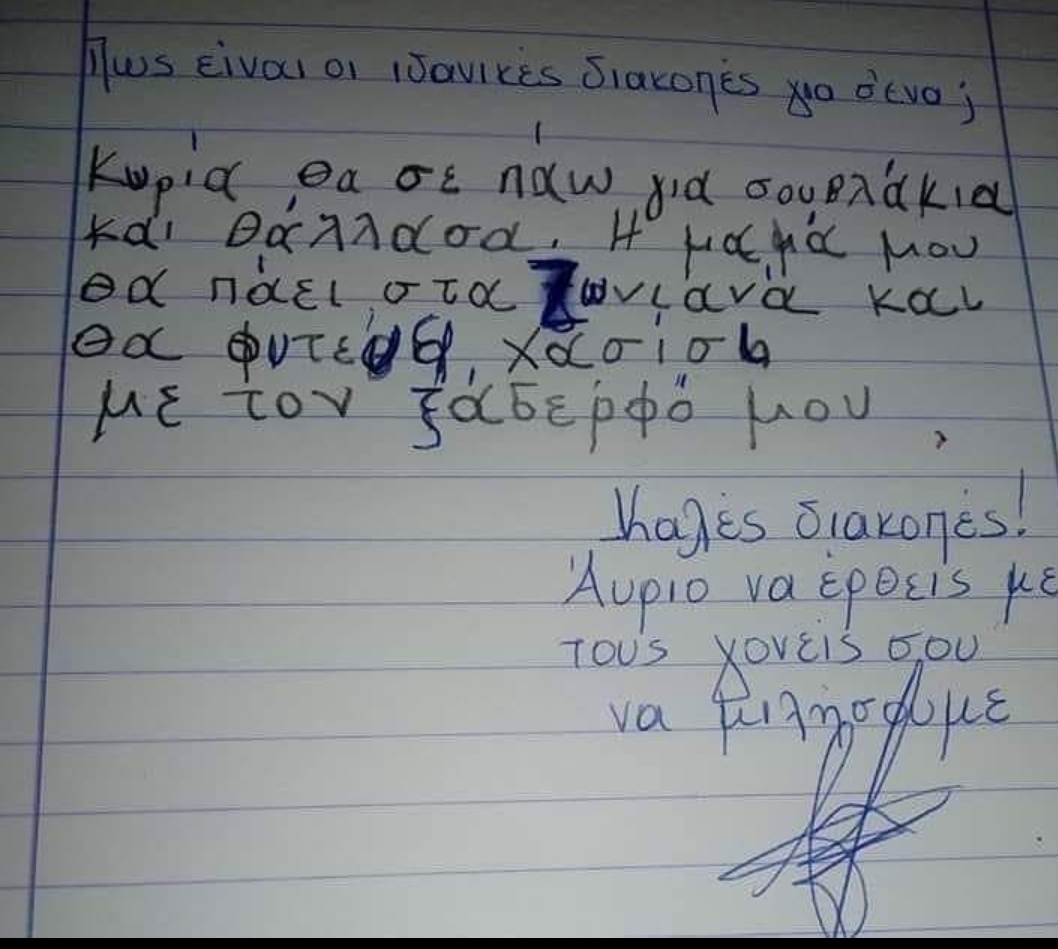 Πως είναι οι ιδανικές διακοπές για σένα;
Κωρία θα σε πάω για σουβλάκια
και θάλλασα. Η μαμά μου
θα πάει στα Ζωνιανά και
θα φυτεψει χασίσι
με τον ξάδερφό μου
Καλές διακοπές!
Άυριο να έρθεις με
τους γονείς σου
να μιλήσουμε